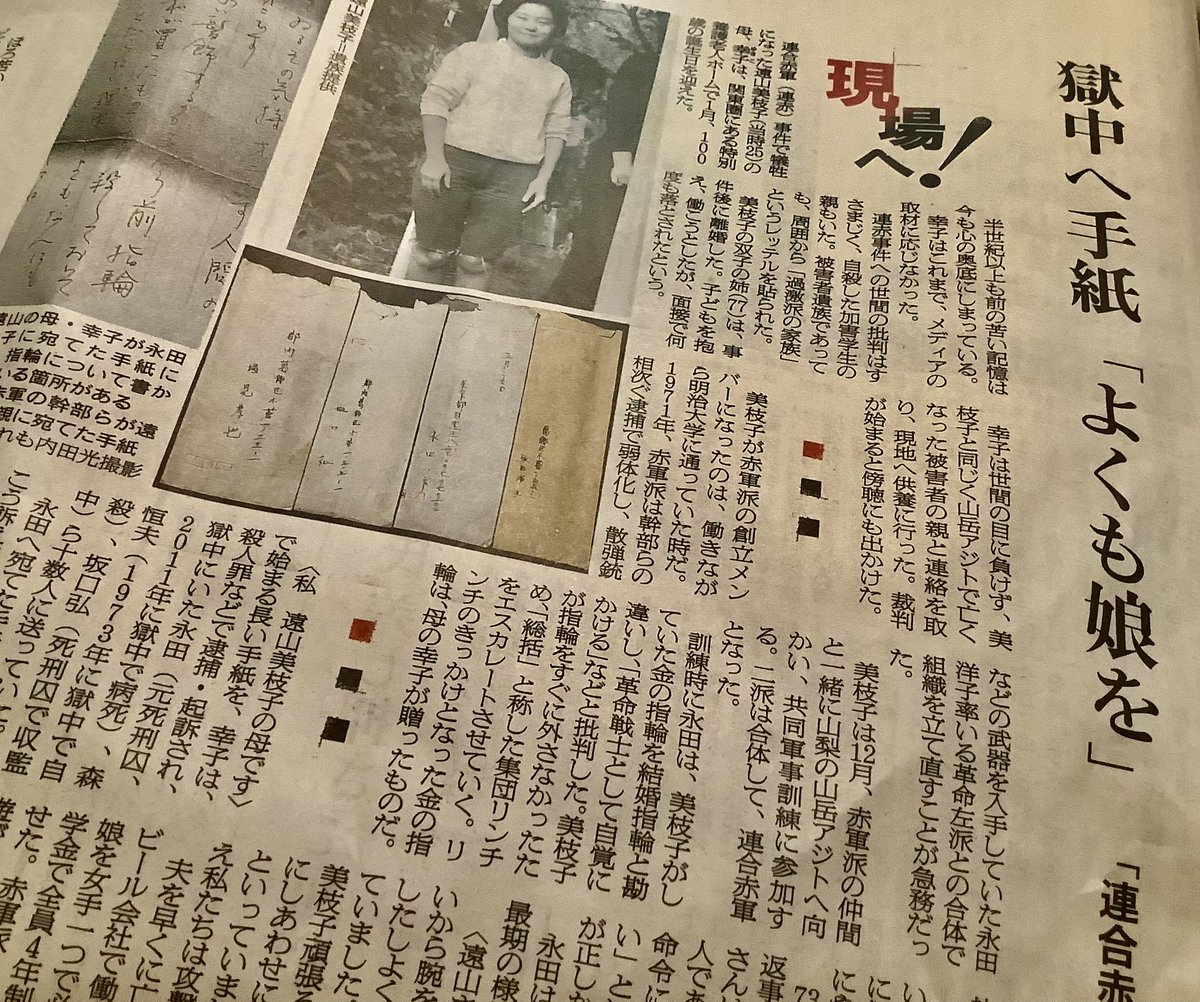 獄中へ手紙「よくも娘を」
「連合赤
現場へ!
連合赤軍(連赤)事件で犠牲
になった遠山美枝子(当時25)の
母、幸子は、関東圏にある特別
養護老人ホームで1月、100
歳の誕生日を迎えた。
半世紀以上も前の苦い記憶は
今も心の奥底にしまっている。
幸子はこれまで、メディアの
取材に応じなかった。
連赤事件への世間の批判はす
さまじく、自殺した加害学生の
親もいた。被害者遺族であって
も、周囲から「過激派の家族」
というレッテルを貼られた。
美枝子の双子の姉(77)は、事
件後に離婚した。子どもを抱
え、働こうとしたが、面接で何
度も落とされたという。
幸子は世間の目に負けず、美
枝子と同じく山岳アジトで亡く
なった被害者の親と連絡を取
り、現地へ供養に行った。裁判
が始まると傍聴にも出かけた。
美枝子が赤軍派の創立メン
バーになったのは、働きなが
ら明治大学に通っていた時だ。
1971年、赤軍派は幹部らの
相次ぐ逮捕で弱体化し、散弾銃
などの武器を入手していた永田
洋子率いる革命左派との合体で
組織を立て直すことが急務だっ
た。
美枝子は12月、赤軍派の仲間
と一緒に山梨の山岳アジトへ向
かい、共同軍事訓練に参加す
る。二派は合体して、連合赤軍
となった。
訓練時に永田は、美枝子がし
ていた金の指輪を結婚指輪と勘
違いし、「革命戦士として自覚に
かける」などと批判した。美枝子
が指輪をすぐに外さなかったた
め、「総括」と称した集団リンチ
をエスカレートさせていく。リ
ンチのきっかけとなった金の指
輪は、母の幸子が贈ったものだ。
〈私 遠山美枝子の母です〉
で始まる長い手紙を、幸子は、
殺人罪などで逮捕・起訴され、
獄中にいた永田(元死刑囚、
2011年に獄中で病死)、森
恒夫(1973年に獄中で自
殺)、坂口弘(死刑囚で収監
中)ら十数人に送っていた。
永田へ宛てた
遠山美枝子=遺族提供
遠山の母・幸子が永田
子に宛てた手紙
指輪について書か
いる箇所がある
赤軍の幹部らが遠
親に宛てた手紙
れも内田光撮影
返事
さんに
人であ
命令に
い」と
が正し
永田は
最期の様
〈遠山さ
いから腕を
したしよく
ていました
美枝子頑張る
にしあわせに
といっていま
え私たちは攻撃
夫を早くに亡
ビール会社で働
娘を女手一つで
学金で全員4年制
せた。
赤軍派
前指輪